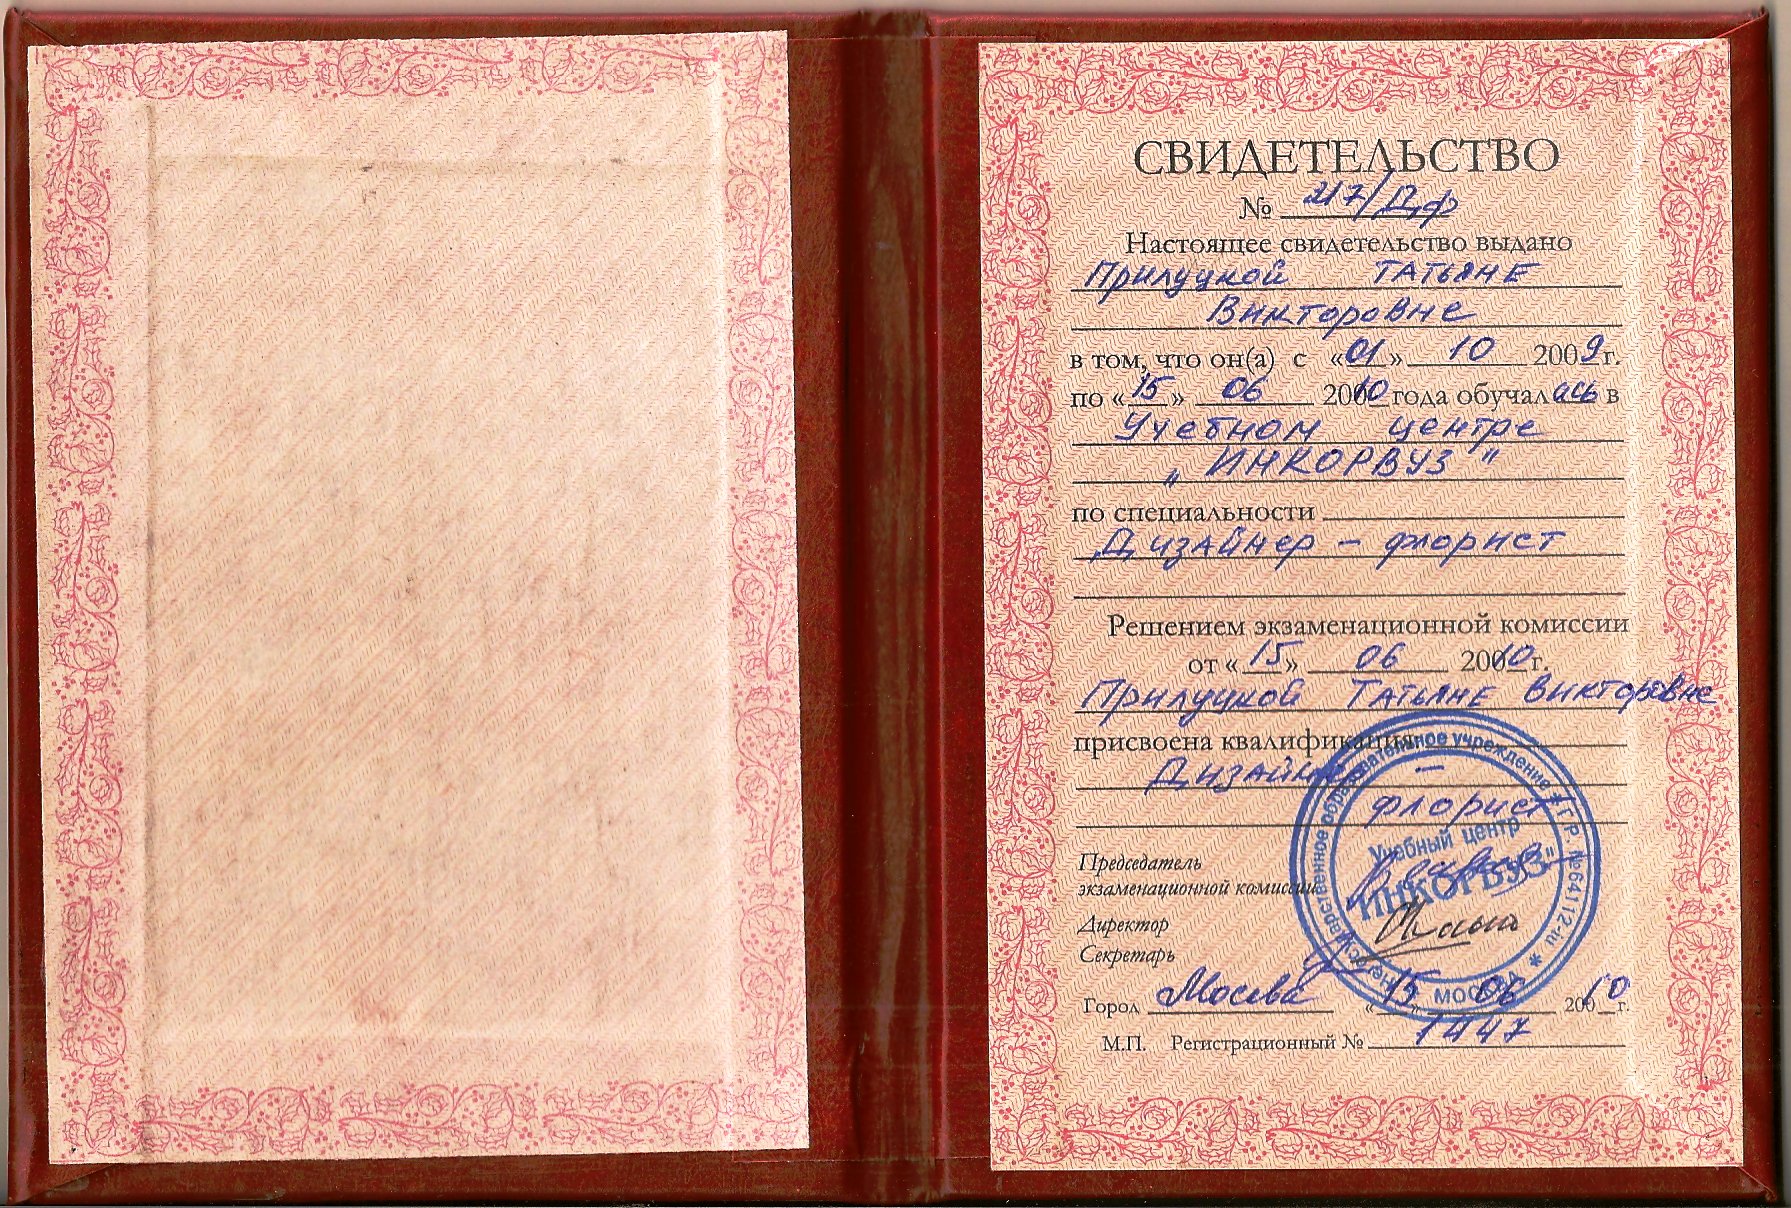 СВИДЕТЕЛЬСТВО
№ 217/Дф
Настоящее свидетельство выдано
Прилуцкой Татьяне
Викторовне
в том, что он(а) с «01» 10 2009г.
по «15» 06 20010 года обучалась в
Учебном центре
„ИНКОРВУЗ"
по специальности
Дизайнер - флорист
Решением экзаменационной комиссии
от «15» 06 20010 г.
Прилуцкой Татьяне Викторовне
присвоена квалификация
Дизайнер -
флорист
Председатель
экзаменационной комиссии
Директор
Секретарь
Город Москва «15» 06 20010 г.
М.П. Регистрационный №
образовательное учреждение * Г.Р. №64112-ш * МОСКВА
Учебный центр
"ИНКОРВУЗ"